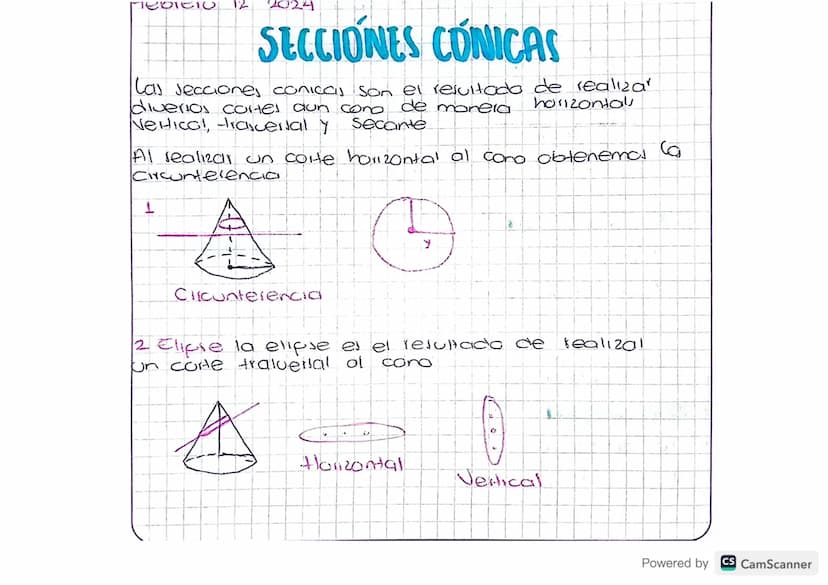 Febrero 12 2024
SECCIÓNES CÓNICAS
Las secciones conicas son el resultado de realizar
diversos cortes aun cono de manera horizontal,
Vertical, trasversal y Secante
Al realizar un corte horizontal al cono obtenemos la
circunferencia
1
y
Circunferencia
2 Elipse la elipse es el resultado de realizar
un corte trasversal al cono
Horizontal
Vertical
Powered by CS CamScanner